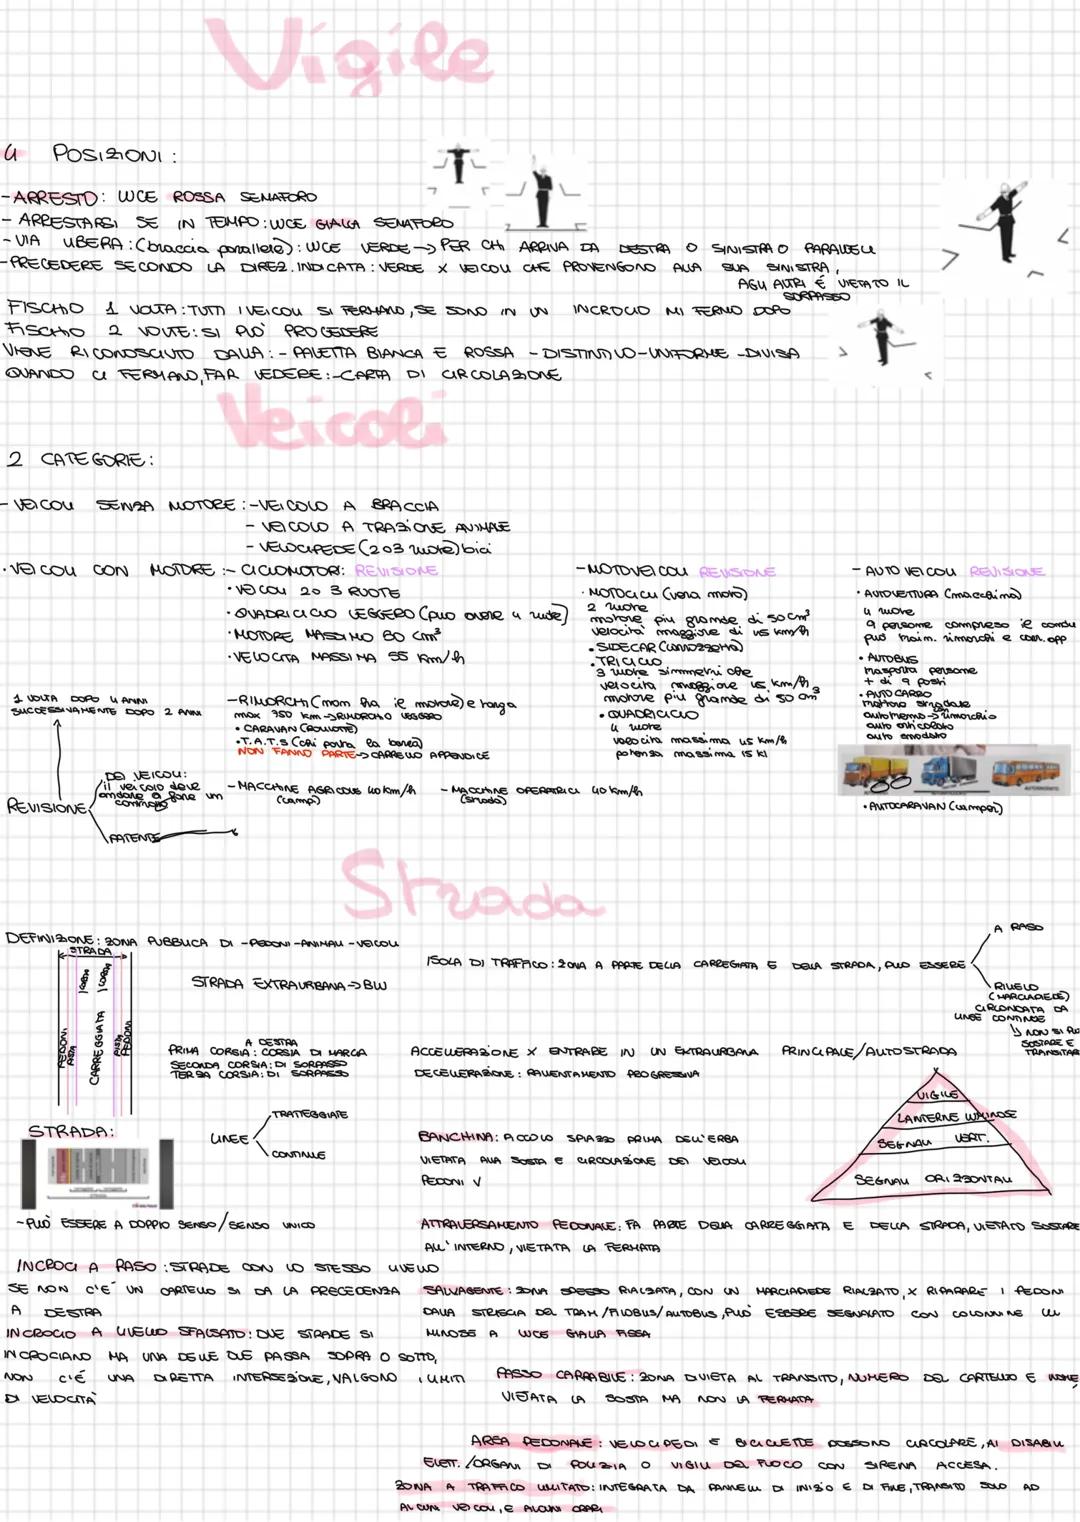 Vigile
4 POSIZIONI:
-ARRESTO: LUCE ROSSA SEMAFORO
- ARRESTARSI SE IN TEMPO: LUCE GIALLA SEMAFORO
- VIA LIBERA: (braccia parallele): LUCE VERDE → PER CHI ARRIVA DA DESTRA O SINISTRA O PARALLELI
-PRECEDERE SECONDO LA DIREZ. INDICATA: VERDE X VEICOLI CHE PROVENGONO ALLA SUA SINISTRA,
AGLI ALTRI É VIETATO IL
SORPASSO
FISCHIO 1 VOLTA: TUTTI I VEICOLI SI FERMANO, SE SONO IN UN INCROCIO MI FERMO DOPO
FISCHIO 2 VOLTE: SI PUÒ PROCEDERE
VIENE RICONOSCIUTO DALLA: - PALETTA BIANCA E ROSSA - DISTINTIVO-UNIFORME -DIVISA
QUANDO CI FERMANO, FAR VEDERE: -CARTA DI CIRCOLAZIONE
Veicoli
2 CATEGORIE:
- VEICOLI SENZA MOTORE: -VEICOLO A BRACCIA
- VEICOLO A TRAZIONE ANIMALE
- VELOCIPEDE (2 O 3 ruote) bici
· VEICOLI CON MOTORE :- CICLOMOTORI: REVISIONE
· VEICOLI 2 O 3 RUOTE
· QUADRICICLO LEGGERO (può avere 4 ruote)
· MOTORE MASSIMO 50 cm³
· VELOCITA MASSIMA 55 Km/h
-RIMORCHI (non ha il motore) e targa
max 750 km → RIMORCHIO LEGGERO
· CARAVAN (ROULOTTE)
· T.A.T.S (chi porta la barca)
NON FANNO PARTE → CARRELLO APPENDICE
- MACCHINE AGRICOLE 40 km/h
(campi)
- MACCHINE OPERATRICI 40 km/h
(strada)
-MOTOVEICOLI REVISIONE
· MOTOCICLI (vera moto)
2 ruote
motore più grande di 50 cm³
velocità maggiore di 45 km/h
· SIDECAR (carrozzetta)
· TRICICLO
3 ruote simmetriche
velocita maggiore 45 km/h
motore più grande di 50 cm³
· QUADRICICLO
4 ruote
velocita massima 45 km/h
potenza massima 15 kl
- AUTOVEICOLI REVISIONE
· AUTOVETTURA (macchina)
4 ruote
9 persone compreso il condu
può train. rimorchi e carr. app
· AUTOBUS
trasporta persone
+ di 9 posti
· AUTOCARRO
autotreno → rimorchio
auto articolato
auto snodato
· AUTOCARAVAN (camper)
1 VOLTA DOPO 4 ANNI
SUCCESSIVAMENTE DOPO 2 ANNI
REVISIONE
DEI VEICOLI:
il veicolo deve
andare a fare un
controllo
PATENTE
Strada
DEFINIZIONE: ZONA PUBBLICA DI -PEDONI -ANIMALI -VEICOLI
STRADA
CORSIA
CORSIA
CARREGGIATA
PEDONI
PEDONI
STRADA EXTRAURBANA → BLU
A DESTRA
PRIMA CORSIA: CORSIA DI MARCIA
SECONDA CORSIA: DI SORPASSO
TERZA CORSIA: DI SORPASSO
LINEE
TRATTEGGIATE
CONTINUE
STRADA:
-PUÒ ESSERE A DOPPIO SENSO/SENSO UNICO
INCROCI A RASO: STRADE CON LO STESSO LIVELLO
SE NON C'É UN CARTELLO SI DA LA PRECEDENZA
A DESTRA
INCROCIO A LIVELLO SFALSATO: DUE STRADE SI
INCROCIANO MA UNA DELLE DUE PASSA SOPRA O SOTTO,
NON C'É UNA DIRETTA INTERSEZIONE, VALGONO I LIMITI
DI VELOCITÀ
ISOLA DI TRAFFICO: ZONA A PARTE DELLA CARREGGIATA E DELLA STRADA, PUO ESSERE
A RASO
RILIEVO
(MARCIAPIEDE)
CIRCONDATA DA
LINEE CONTINUE
NON SI PUÒ
SOSTARE E
TRANSITARE
ACCELLERAZIONE X ENTRARE IN UN EXTRAURBANA PRINCIPALE/AUTOSTRADA
DECELLERAZIONE: RALLENTAMENTO PROGRESSIVA
VIGILE
LANTERNE LUMINOSE
SEGNALI VERT.
SEGNALI ORIZZONTALI
BANCHINA: PICCOLO SPIAZZO PRIMA DELL'ERBA
VIETATA ALLA SOSTA E CIRCOLAZIONE DEI VEICOLI
PEDONI V
ATTRAVERSAMENTO PEDONALE: FA PARTE DELLA CARREGGIATA E DELLA STRADA, VIETATO SOSTARE
ALL'INTERNO, VIETATA LA FERMATA
SALVAGENTE: ZONA SPESSO RIALZATA, CON UN MARCIAPIEDE RIALZATO, X RIPARARE I PEDONI
DALLA STRISCIA DEL TRAM/FILOBUS/AUTOBUS, PUÒ ESSERE SEGNALATO CON COLONNINE LU
MINOSE A LUCE GIALLA FISSA
PASSO CARRABILE: ZONA DIVIETA AL TRANSITO, NUMERO DEL CARTELLO E NOME,
VIETATA LA SOSTA MA NON LA FERMATA
AREA PEDONALE: VELOCIPEDI E BICICLETTE POSSONO CIRCOLARE, AI DISABILI
ELETT./ORGANI DI POLIZIA O VIGILI DEL FUOCO CON SIRENA ACCESA.
ZONA A TRAFFICO LIMITATO: INTEGRATA DA PANNELLI DI INIZIO E DI FINE, TRANSITO SOLO AD
ALCUNI VEICOLI, E ALCUNI ORARI